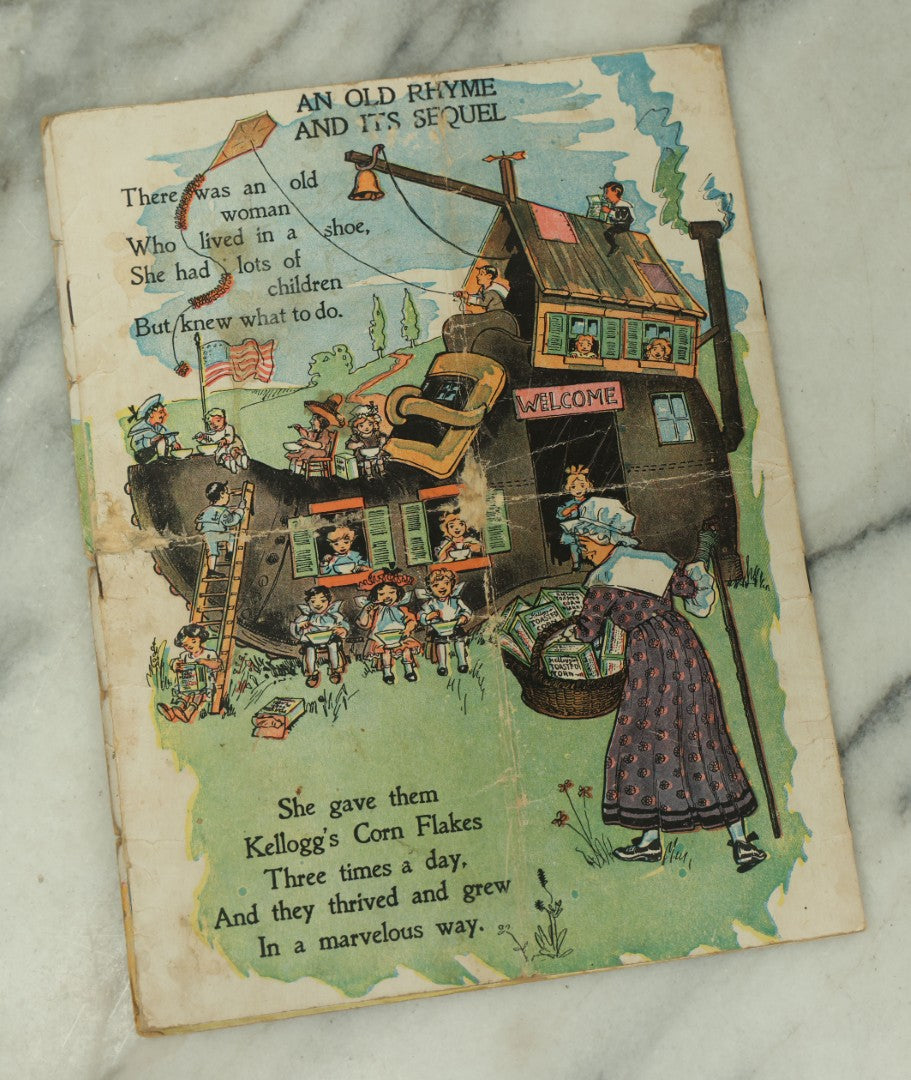 AN OLD RHYME
AND ITS SEQUEL
There was an old
woman
Who lived in a shoe,
She had lots of
children
But knew what to do.
WELCOME
TOASTED
CORN
Kellogg's
TOASTED
CORN
She gave them
Kellogg's Corn Flakes
Three times a day,
And they thrived and grew
In a marvelous way.